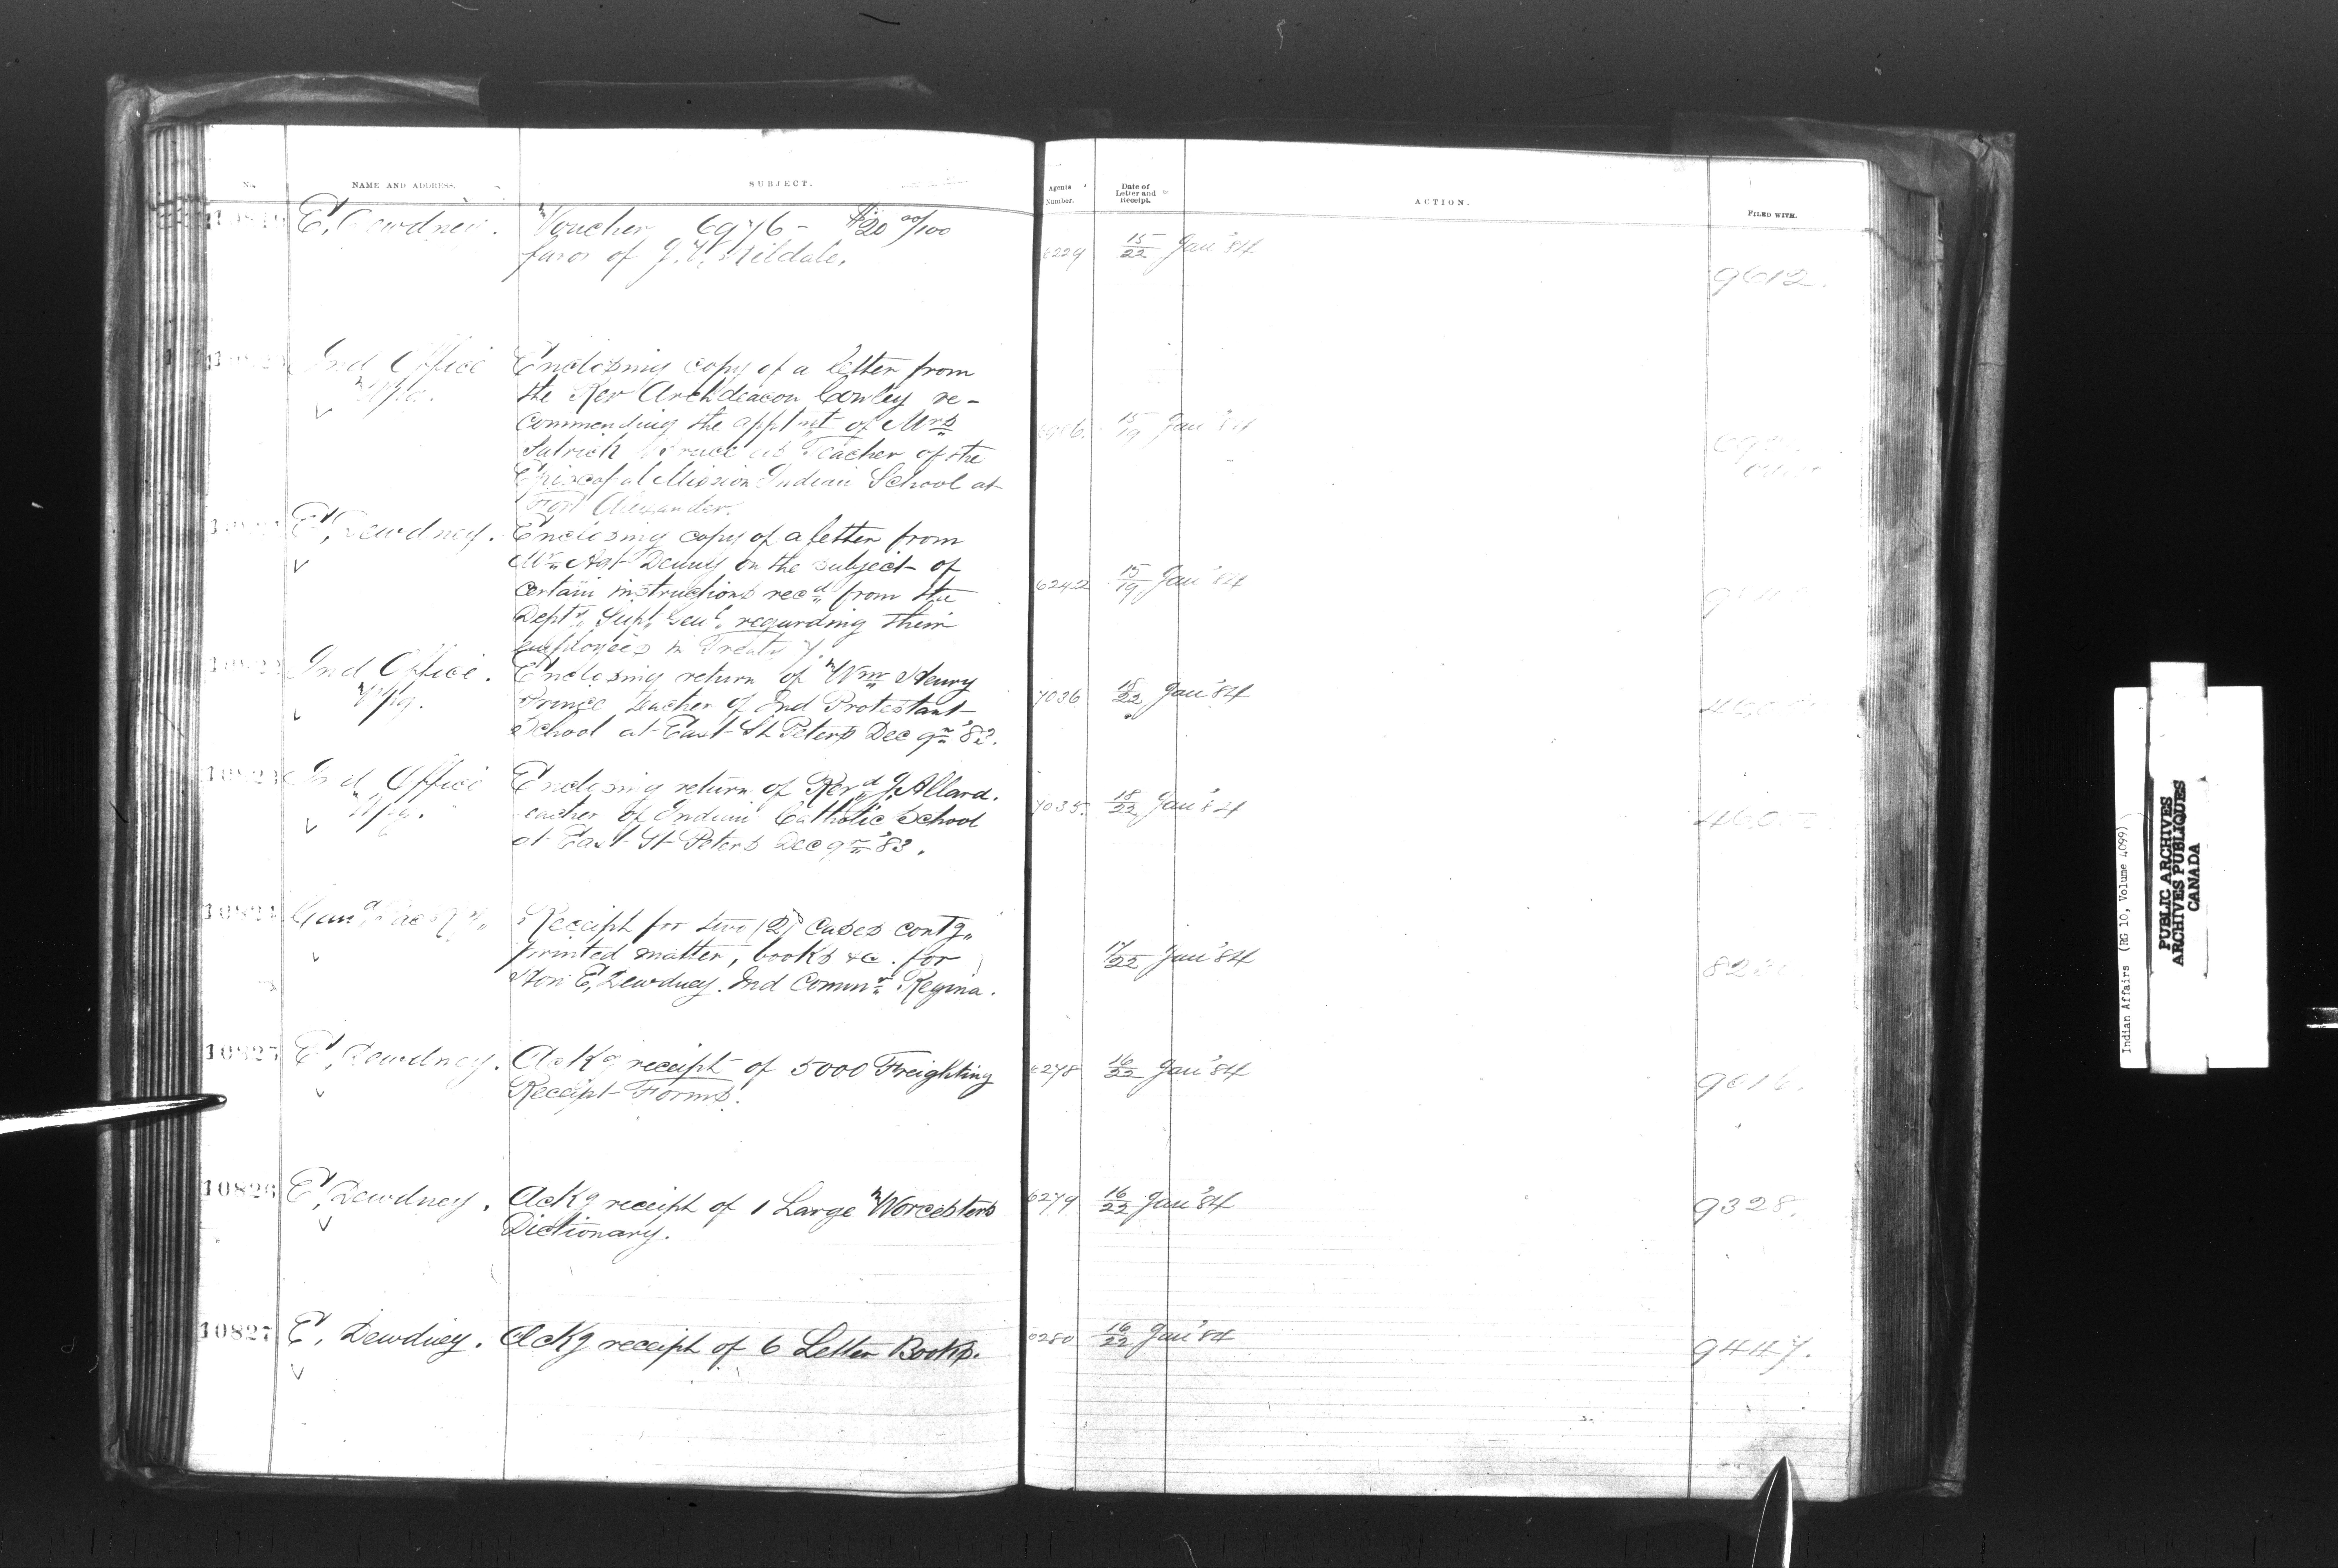 No. NAME AND ADDRESS. SUBJECT. Agents Number. Date of Letter and Receipt. ACTION. FILED WITH.
E. Dewdney. Voucher 6976 - $20 00/100 6229 15/22 Jan '84 9612.
favor of J. W.
Ind Office Enclosing copy of a letter from
Wpg. the Rev Archdeacon Cowley re-
commending the apptmt of Mrs 15/19 Jan '84
Patrick as Teacher of the
Episcopal Mission Indian School at
Fort Alexander.
E. Dewdney. Enclosing copy of a letter from
Mr Agt Denny on the subject of
certain instructions recd from the 6242 15/19 Jan '84
Depty Supt Genl. regarding their
employees in Treaty 7.
10822 Ind Office. Enclosing return of Wm Henry
Wpg. Prince teacher of Ind Protestant 7036 18/22 Jan '84
School at East St Peters Dec qr '83.
10823 Ind Office Enclosing return of Revd J. Allard.
Wpg. teacher of Indian Catholic School 7035. 18/22 Jan '84
at East St Peters Dec qr '83.
10824 Can Pac Ry Receipt for two (2) cases contg
printed matter, books &c. for 17/22 Jan '84
Hon E. Dewdney. Ind Commr Regina.
10825 E. Dewdney. Ackg receipt of 5000 Freighting 6278 16/22 Jan '84
Receipt Forms.
10826 E. Dewdney. Ackg receipt of 1 Large Worcesters 6279 16/22 Jan '84 9328.
Dictionary.
10827 E. Dewdney. Ackg receipt of 6 Letter Books. 6280 16/22 Jan '84 9447.
Indian Affairs (RG 10, Volume 4099)
PUBLIC ARCHIVES
ARCHIVES PUBLIQUES
CANADA